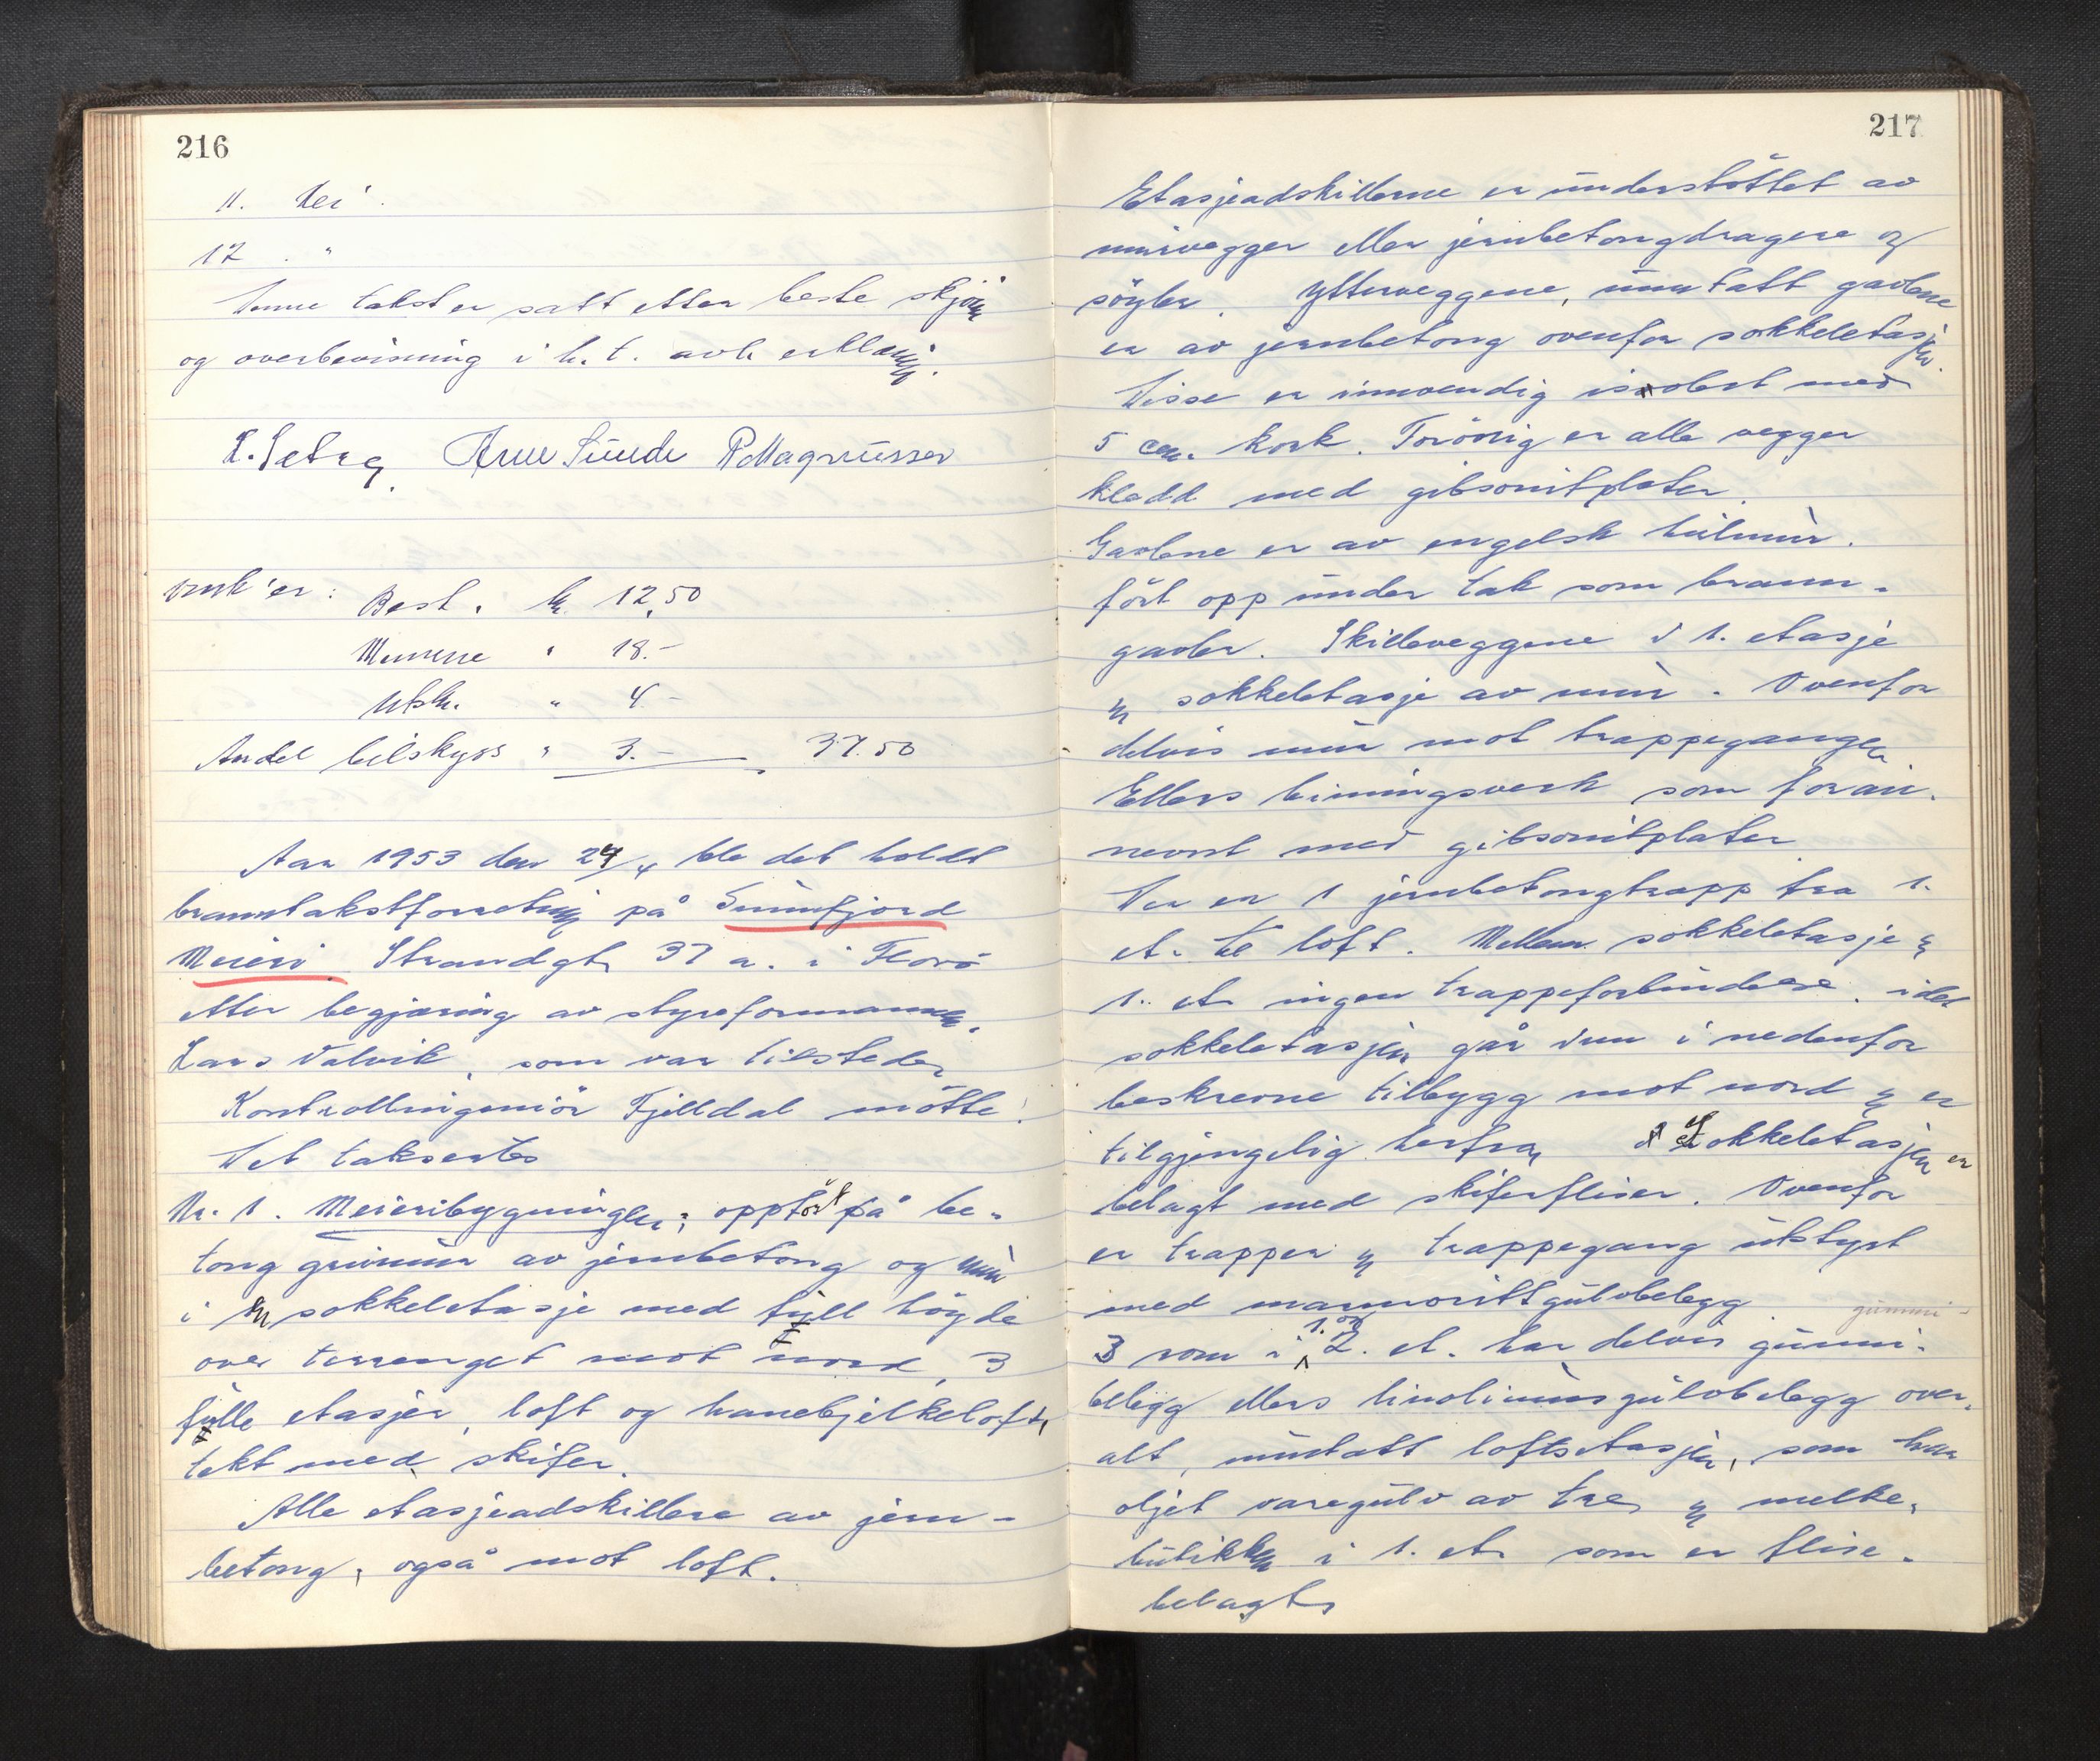 216
11. Nei.
12 . "
Denne takst er satt etter beste skjønn
og overbevisning i h. t. avl. erklæring.
L. Satag. Arne Sunde R Magnussen
Omk'er: Best. kr. 12,50
Mennene " 18.-
Utskr. " 4-
Andel bilskyss " 3.- 37.50
Aar 1953 den 24/4 ble det holdt
branntakstforretning på Sunnfjord
Meieri Strandgt. 37 a. i Florö
etter begjæring av styreformannen,
Lars Valvik, som var tilstede.
Kontrollingeniör Fjelldal mötte.
Det taksertes
Nr. 1. Meieribygningen; oppfört på be-
tong grunmur av jernbetong og mur
i en sokkeletasje med full högde
over terrenget mot nord, 3
fulle etasjer, loft og hanebjelkeloft,
tekt med skifer.
Alle etasjeadskillere av jern-
betong, også mot loft.
217
Etasjeadskillerne er understöttet av
murvegger eller jernbetongdragere og
söyler. Ytterveggene, unntatt gavlene
er av jernbetong ovenfor sokkeletasjen.
Disse er innvendig isolert med
5 cm. kork. Forövrig er alle vegger
kledd med gibsonitplater.
Gavlene er av engelsk hulmur.
fört opp under tak som brann-
gavler. Skilleveggene i 1. etasje
og sokkeletasje av mur. Ovenfor
delvis mur mot trappegangen
Ellers binningsverk som foran.
nevnt med gibsonitplater
Der er 1 jernbetongtrapp fra 1.
et. til loft. Mellem sokkeletasje og
1. et. ingen trappeforbindelse, idet
sokkeletasjen går inn i nedenfor
beskrevne tilbygg mot nord og er
tilgjengelig herfra, Sokkeletasjen er
belagt med skiferfliser. Ovenfor
er trapper og trappegang utstyrt
med marmorittgulvbelegg gummi-
3 rom i 1. og 2. et. har delvis gummi-
belegg ellers linoliumsgulvbelegg over-
alt, unntatt loftsetasjen, som har
oljet varegulv av tre, og melke-
butikken i 1. et. som er flise-
belagt,